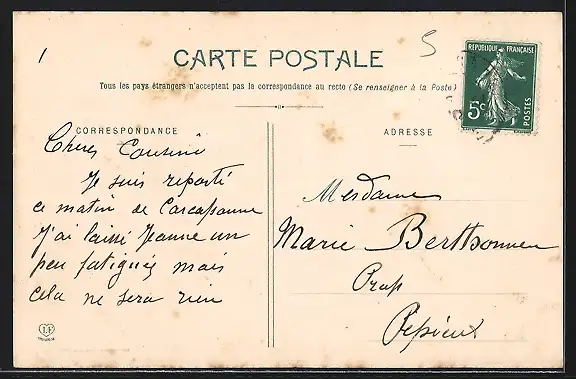 1
5
CARTE POSTALE
Tous les pays étrangers n'acceptent pas la correspondance au recto (Se renseigner à la Poste)
REPUBLIQUE FRANÇAISE
5c
POSTES
CORRESPONDANCE
ADRESSE
Cheres Cousine
Je suis reparti
ce matin de Carcassonne
J'ai laissé Jeanne un
peu fatiguée mais
cela ne sera rien
Mesdames
Marie
Pépieux